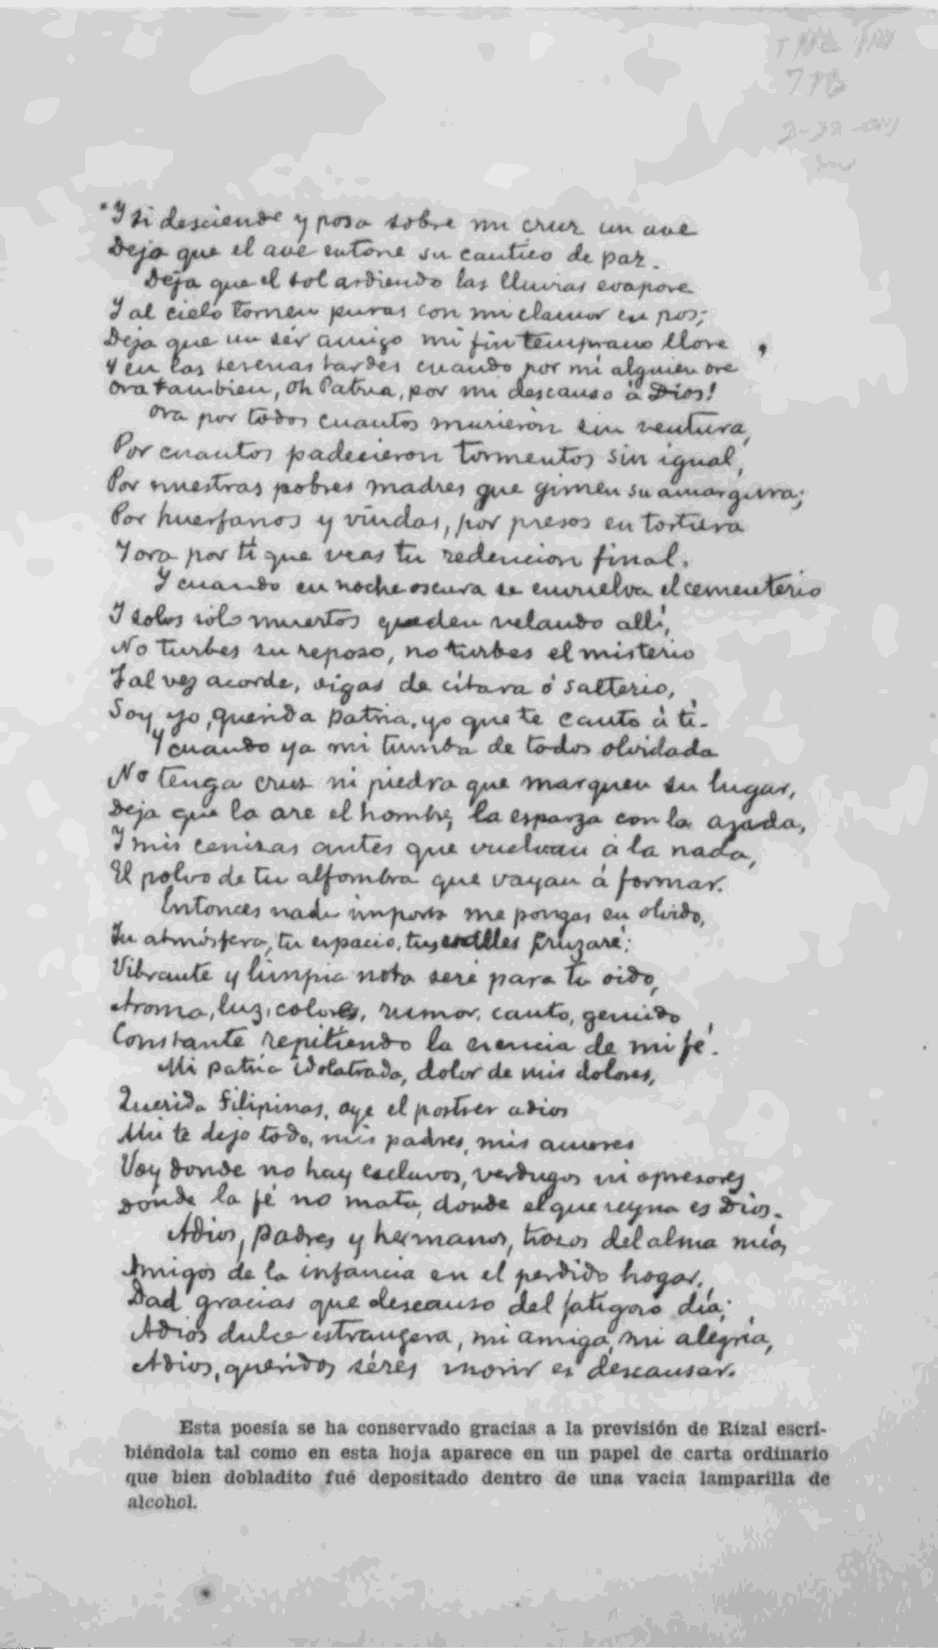 Y si desciende y posa sobre mi cruz un ave
Deja que el ave entone su cantico de paz.
Deja que el sol ardiendo las lluvias evapore
Y al cielo tornen puras con mi clamor en pos;
Deja que un sér amigo mi fin temprano llore
Y en las serenas tardes cuando por mi alguien ore
Ora tambien, Oh Patria, por mi descanso á Dios!
Ora por todos cuantos murieron sin ventura,
Por cuantos padecieron tormentos sin igual,
Por nuestras pobres madres que gimen su amargura;
Por huerfanos y viudas, por presos en tortura
Y ora por ti que veas tu redencion final.
Y cuando en noche oscura se envuelva el cementerio
Y solos sólo muertos queden velando allí,
No turbes su reposo, no turbes el misterio
Tal vez acorde, oigas de cítara ó salterio,
Soy yo, querida Patria, yo que te canto á ti.
Y cuando ya mi tumba de todos olvidada
No tenga cruz ni piedra que marquen su lugar,
Deja que la are el hombre, la esparza con la azada,
Y mis cenizas antes que vuelvan á la nada,
El polvo de tu alfombra que vayan á formar.
Entonces nada importa me pongas en olvido,
Tu atmósfera, tu espacio, tus valles cruzaré;
Vibrante y limpia nota seré para tu oido,
Aroma, luz, colores, rumor, canto, gemido
Constante repitiendo la esencia de mi fé.
Mi patria idolatrada, dolor de mis dolores,
Querida Filipinas, oye el postrer adios
Ahi te dejo todo, mis padres, mis amores
Voy donde no hay esclavos, verdugos ni opresores
Donde la fé no mata, donde el que reyna es Dios.
Adios, padres y hermanos, trozos del alma mía,
Amigos de la infancia en el perdido hogar,
Dad gracias que descanso del fatigoso día;
Adios dulce estrangera, mi amiga, mi alegría,
Adios, queridos séres morir es descansar.
Esta poesía se ha conservado gracias a la previsión de Rizal escri-
biéndola tal como en esta hoja aparece en un papel de carta ordinario
que bien dobladito fué depositado dentro de una vacia lamparilla de
alcohol.